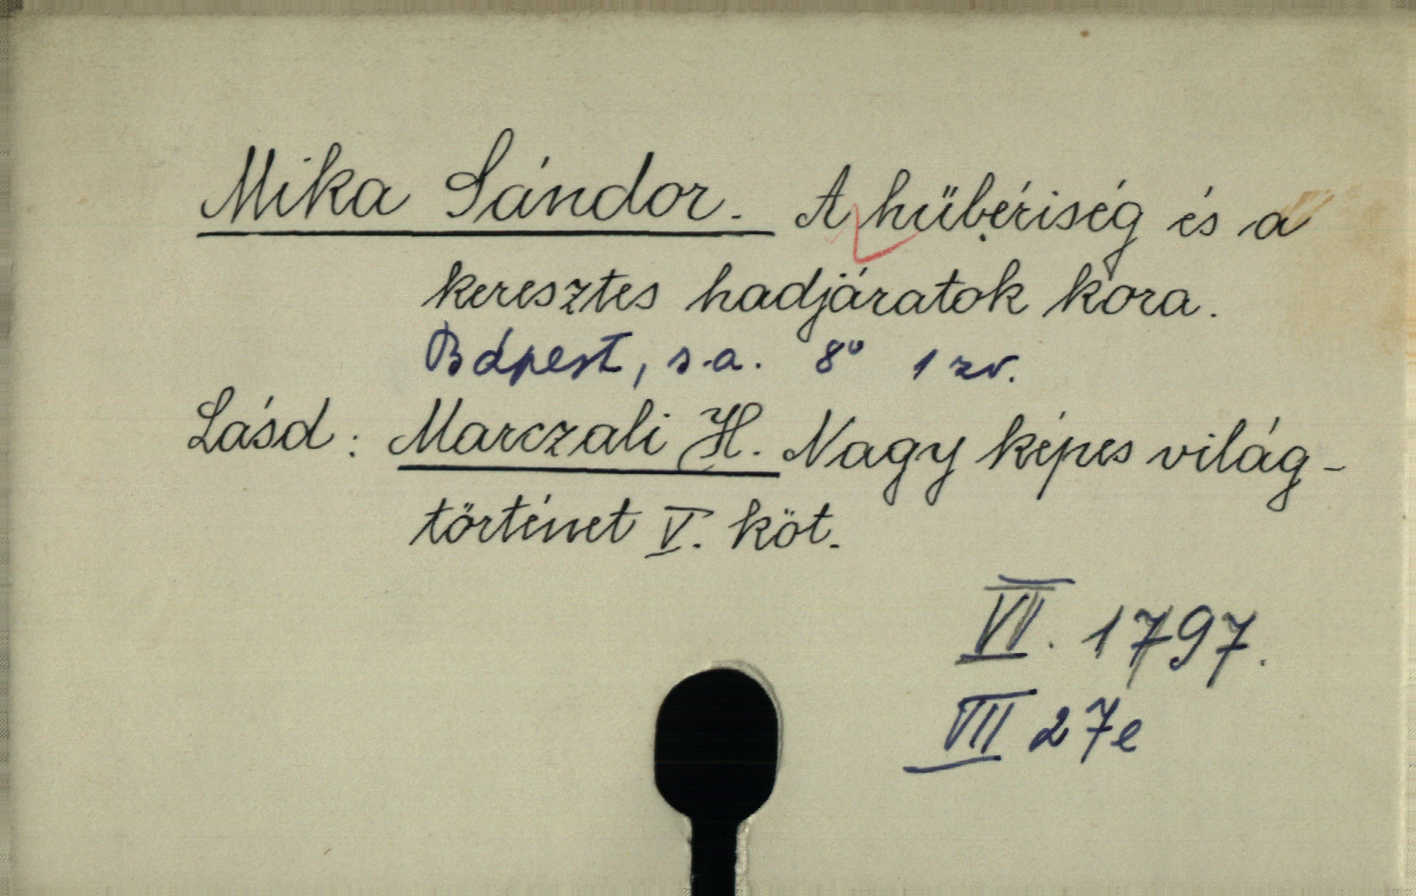 Mika Sándor. A hübériség és a
keresztes hadjáratok kora.
Bdpest, s.a. 8° 1 zv.
Lásd: Marczali H. Nagy képes világ-
történet V. köt.
VI. 1797.
VII 27e